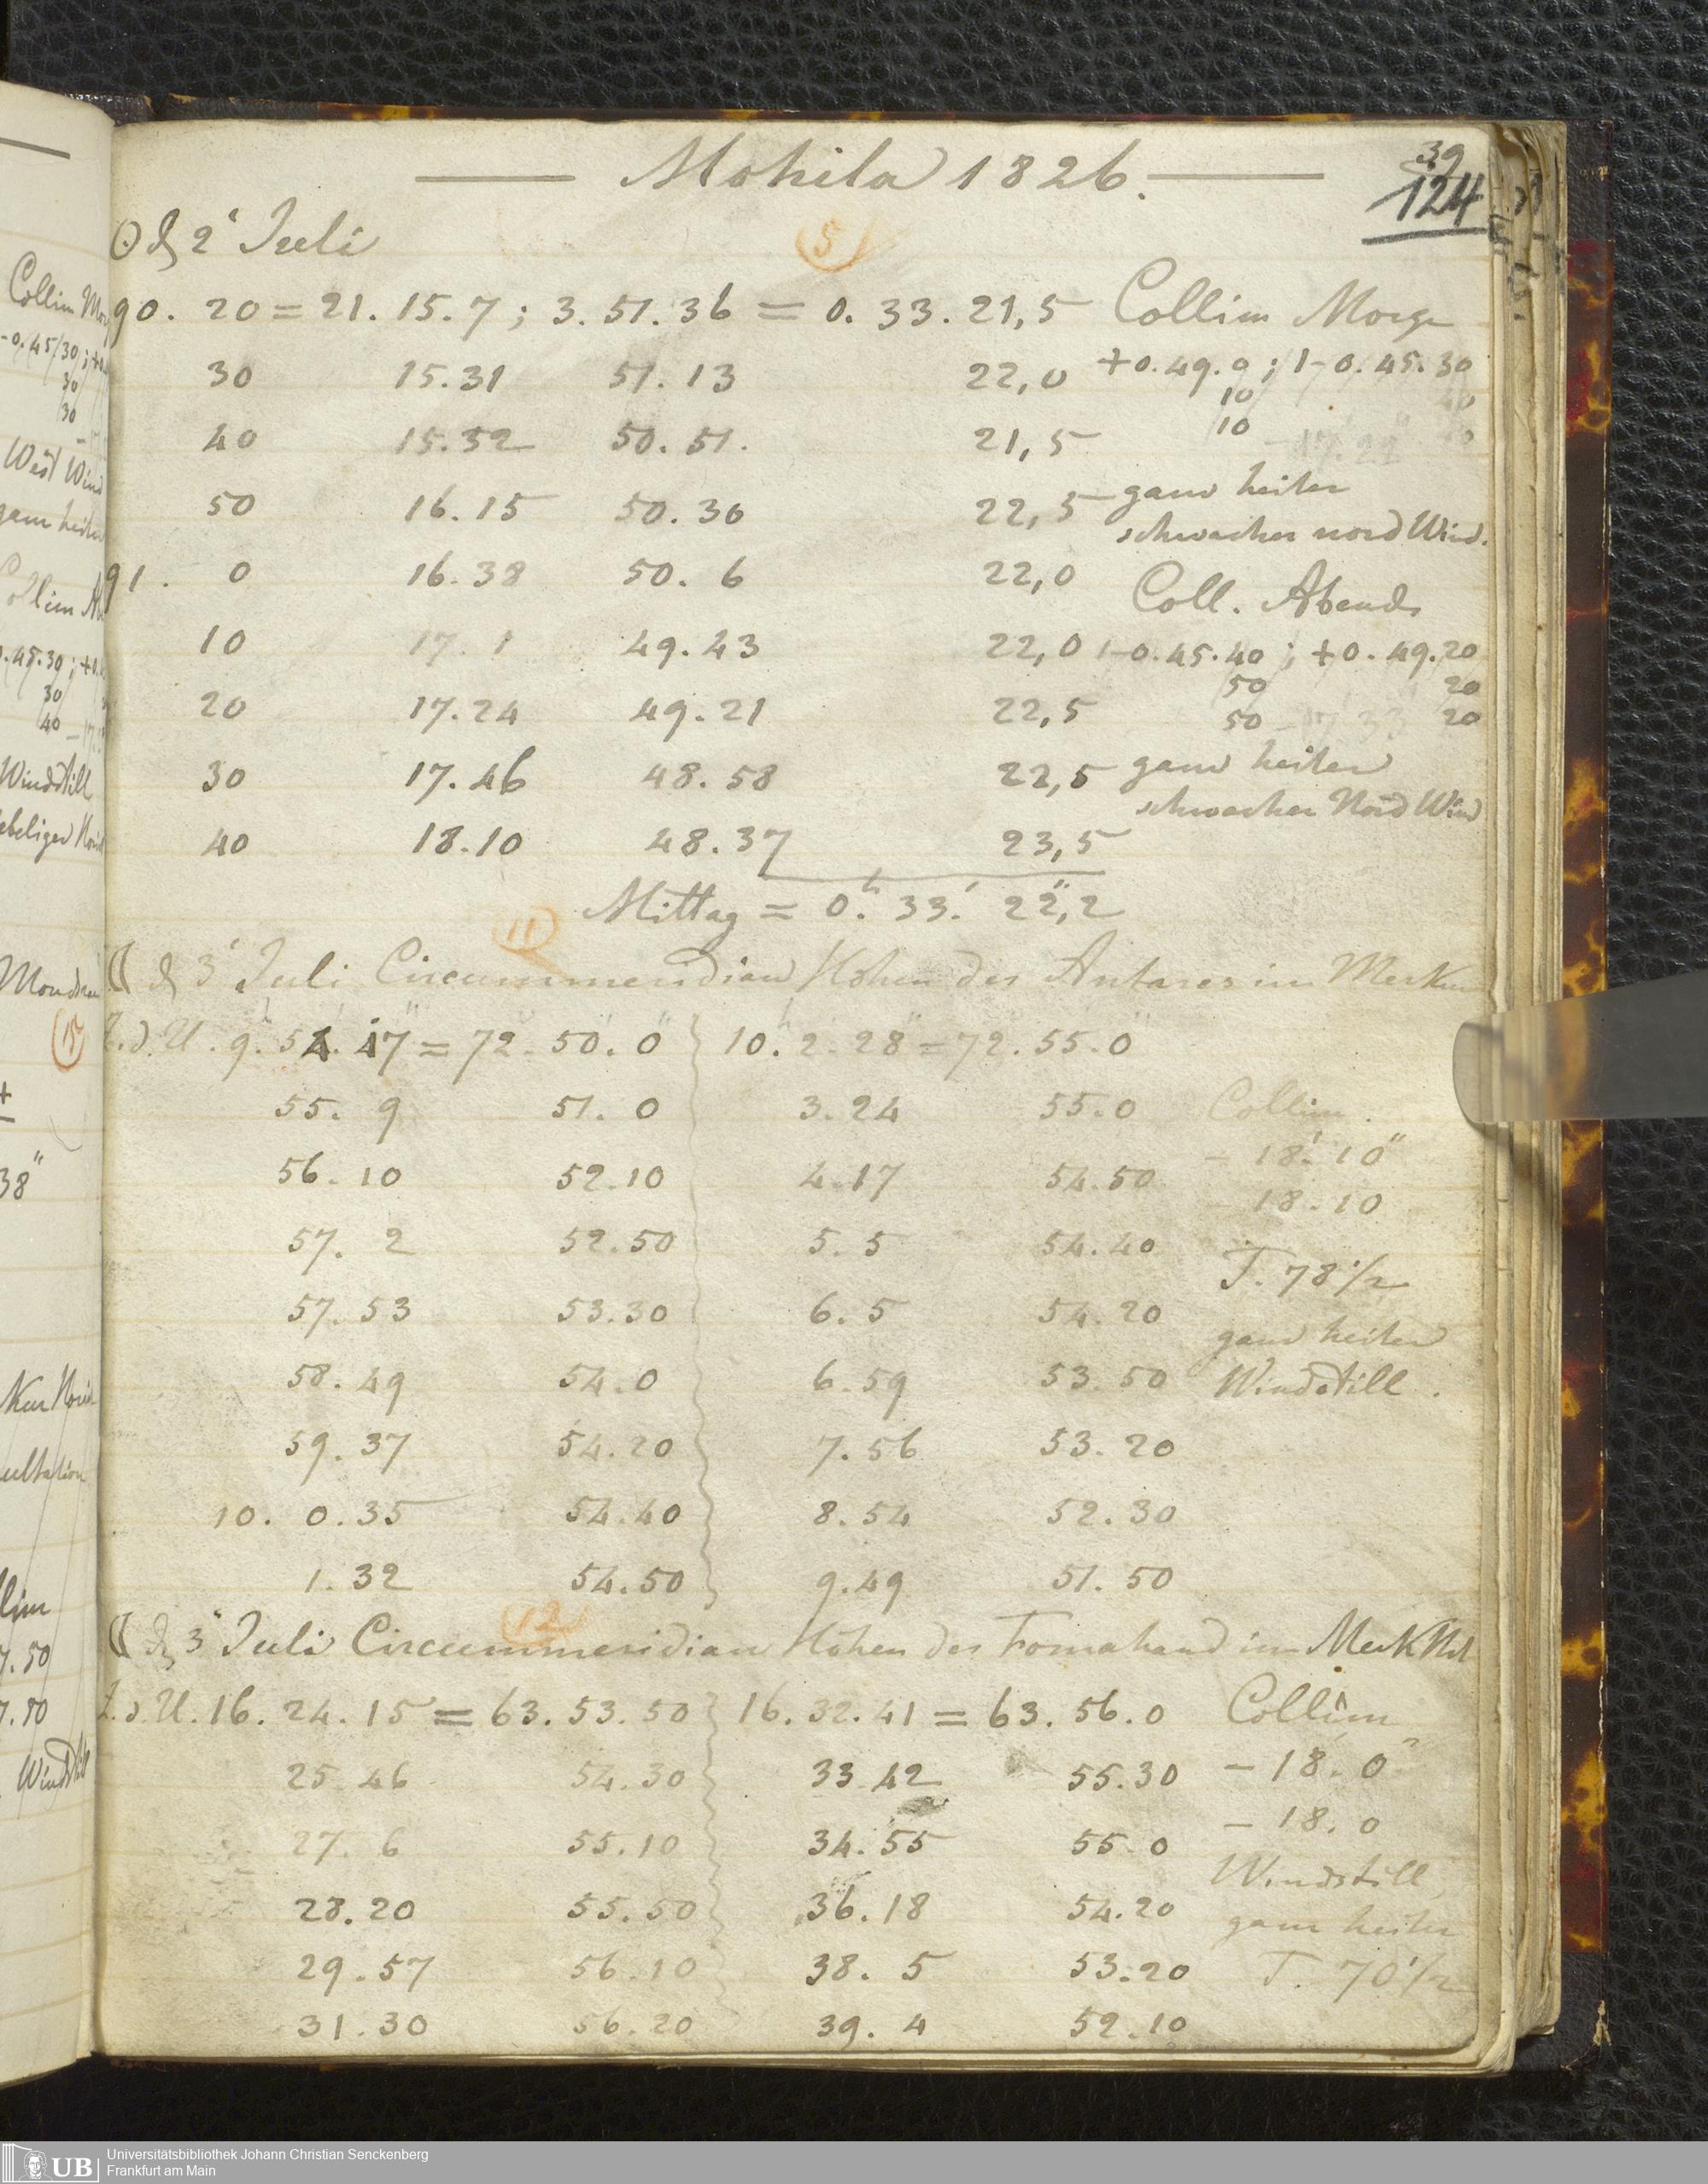 Mohila 1826.
39
124
☉ d 2' Juli
5
90. 20 = 21. 15. 7; 3. 51. 36 = 0. 33. 21,5 Collim Morge
30 15.31 51. 13 22,0 +0.49.0; 1-0.45.30
10
40 15.52 50. 51. 21,5 10
50 16.15 50. 30 22,5 ganz heiter
schwacher nord Wind.
91. 0 16.38 50. 6 22,0 Coll. Abends
10 17. 1 49.43 22,0 1-0.45.40; +0.49.20
50 20
20 17.24 49.21 22,5 50 -17.33 20
30 17.46 48.58 22,5 ganz heiter
schwacher Nord Wind
40 18.10 48.37 23,5
Mittag = 0.h 33.' 22,''2
11
☾ d 3' Juli Circummeridian Höhen des Antares im Merkur
Z.d.U. 9. 54. 17" = 72. 50. 0" 10.h 2. 28" = 72. 55. 0"
55. 9 51. 0 3.24 55.0 Collim.
56. 10 52.10 4.17 54.50 - 18.' 10"
- 18. 10
57. 2 52.50 5. 5 54.40 T. 78 1/2
57. 53 53.30 6. 5 54.20 ganz heiter
58. 49 54.0 6.59 53.50 Windstill.
59. 37 54.20 7.56 53.20
10. 0.35 54.40 8.54 52.30
1.32 54.50 9.49 51.50
12
☾ d 3' Juli Circummeridian Höhen des Fomahand im Merk Hd
Z.d.U. 16. 24. 15 = 63. 53. 50 16. 32. 41 = 63. 56. 0 Collim
25.46 54.30 33 42 55.30 - 18. 0"
27. 6 55.10 34. 55 55. 0 - 18. 0
Windstill
28.20 55.50 36. 18 54.20 ganz heiter
29.57 56.10 38. 5 53.20 T. 70 1/2
31.30 56.20 39. 4 52.10
Universitätsbibliothek Johann Christian Senckenberg
Frankfurt am Main
UB